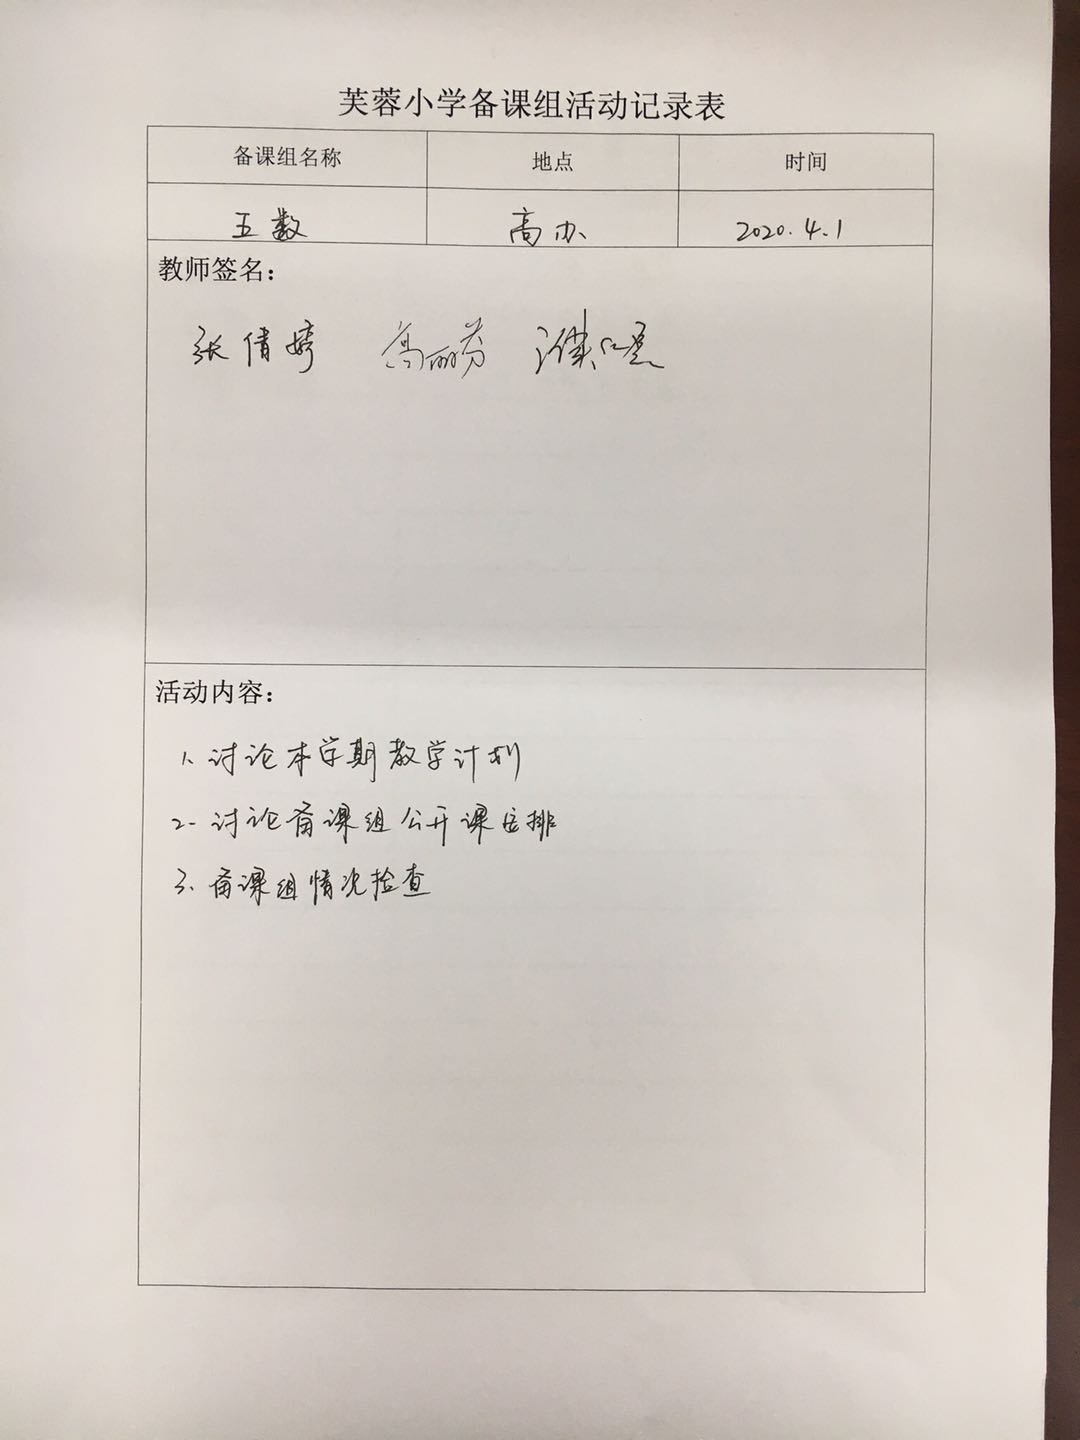 芙蓉小学备课组活动记录表
备课组名称 地点 时间
五数 高办 2020.4.1
教师签名：
张倩婷 高丽芬
活动内容：
1、讨论本学期教学计划
2、讨论备课组公开课安排
3、备课组情况检查